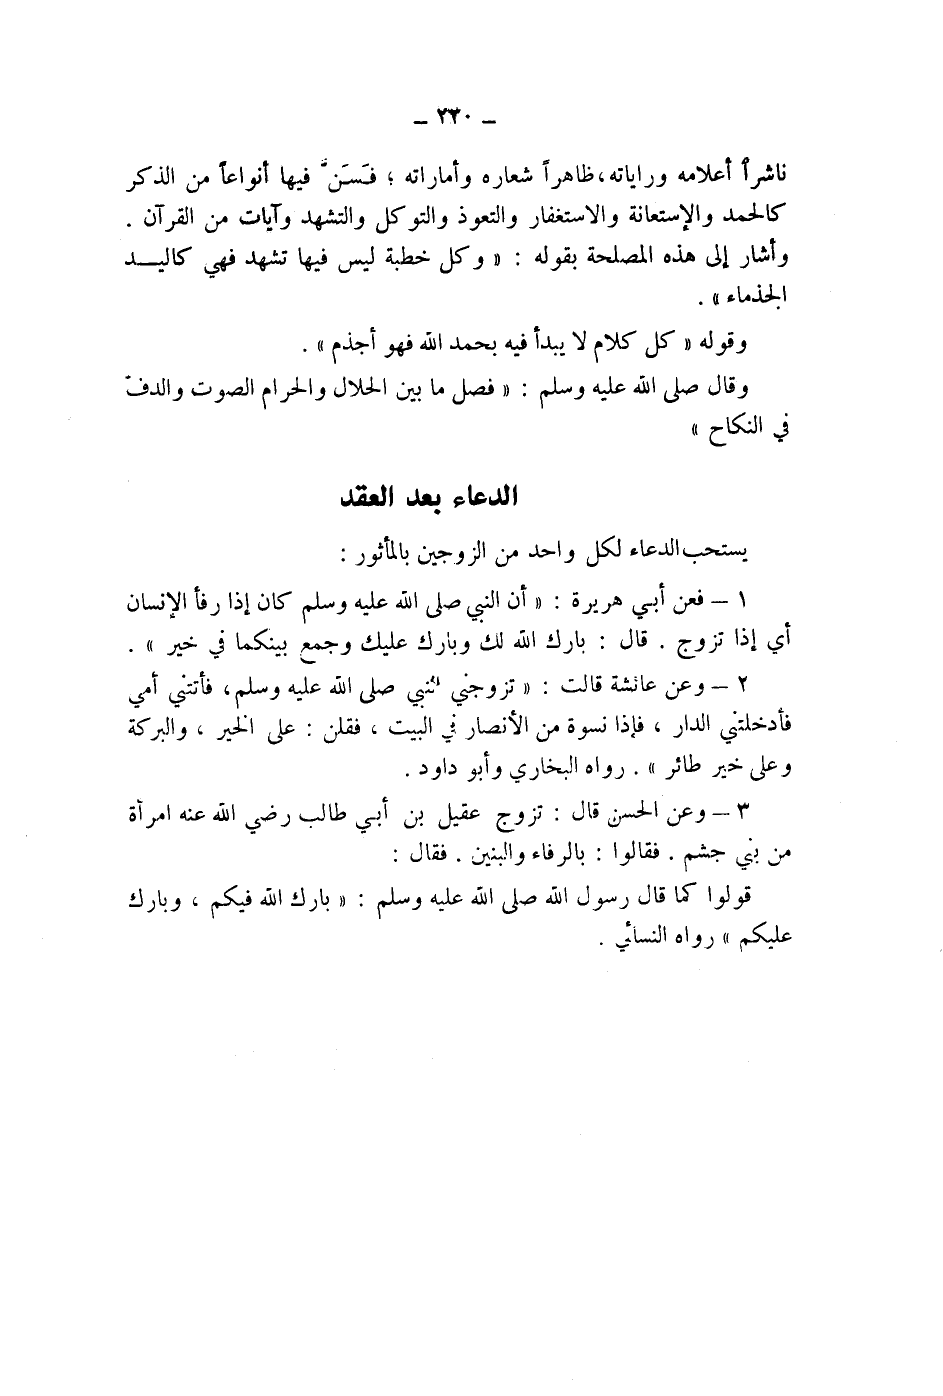 — ٢٣٠ —
ناشراً أعلامه وراياته، ظاهراً شعاره وأماراته ؛ فَسَنَّ فيها أنواعاً من الذكر
كالحمد والإستعانة والاستغفار والتعوذ والتوكل والتشهد وآيات من القرآن .
وأشار إلى هذه المصلحة بقوله : « وكل خطبة ليس فيها تشهد فهي كاليـــد
الجذماء » .
وقوله « كل كلام لا يبدأ فيه بحمد الله فهو أجذم » .
وقال صلى الله عليه وسلم : « فصل ما بين الحلال والحرام الصوت والدفّ
في النكاح »
الدعاء بعد العقد
يستحب الدعاء لكل واحد من الزوجين بالمأثور :
١ – فعن أبي هريرة : « أن النبي صلى الله عليه وسلم كان إذا رفأ الإنسان
أي إذا تزوج . قال : بارك الله لك وبارك عليك وجمع بينكما في خير » .
٢ – وعن عائشة قالت : « تزوجني النبي صلى الله عليه وسلم، فأتتني أمي
فأدخلتني الدار ، فإذا نسوة من الأنصار في البيت ، فقلن : على الخير ، والبركة
وعلى خير طائر » . رواه البخاري وأبو داود .
٣ – وعن الحسن قال : تزوج عقيل بن أبي طالب رضي الله عنه امرأة
من بني جشم . فقالوا : بالرفاء والبنين . فقال :
قولوا كما قال رسول الله صلى الله عليه وسلم : « بارك الله فيكم ، وبارك
عليكم » رواه النسائي .